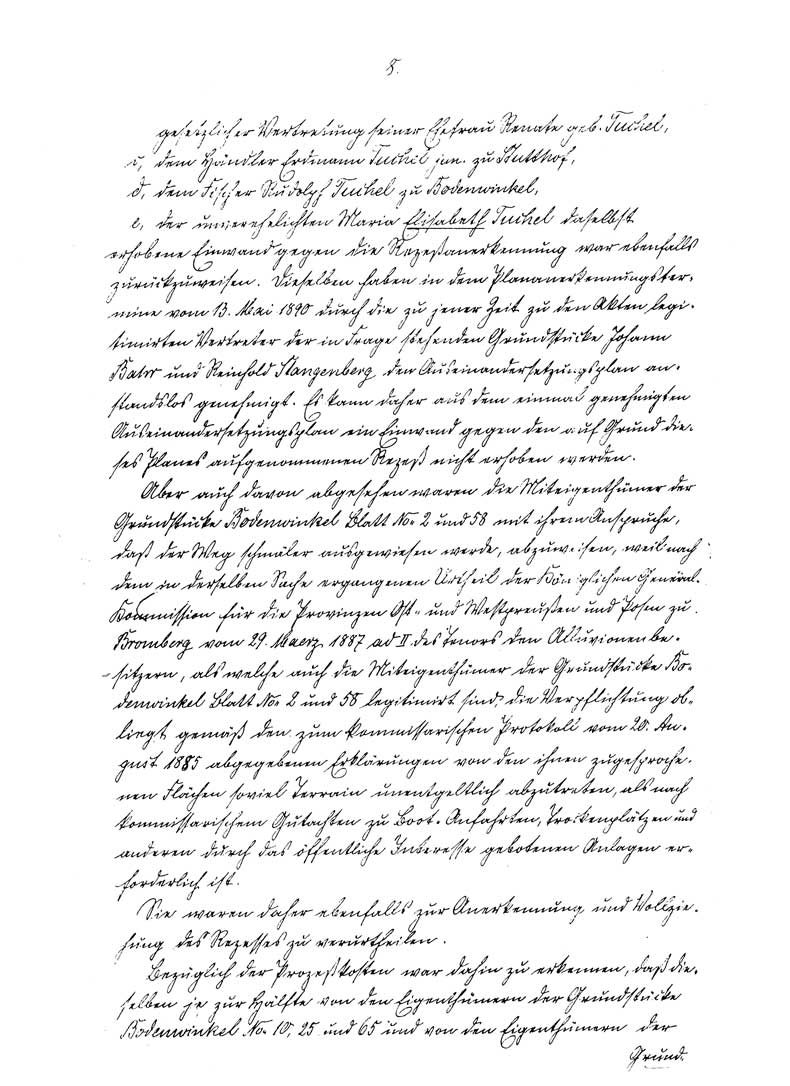 8.
gesetzlicher Vertretung seiner Ehefrau Renate geb. Tuchel,
c, dem Händler Erdmann Tuchel jun. zu Stutthof,
d, dem Fischer Rudolph Tuchel zu Bodenwinkel,
e, der unverehelichten Maria Elisabeth Tuchel daselbst
erhobene Einwand gegen die Rezeßanerkennung war ebenfalls
zurückzuweisen. Dieselben haben in dem Plananerkennungster-
mine vom 13. Mai 1890 durch die zu jener Zeit zu den Akten legi-
timirten Vertreter der in Frage stehenden Grundstücke Johann
Bahr und Reinhold Stangenberg den Auseinandersetzungsplan an-
standslos genehmigt. Es kann daher aus dem einmal genehmigten
Auseinandersetzungsplan ein Einwand gegen den auf Grund die-
ses Planes aufgenommenen Rezeß nicht erhoben werden.
Aber auch davon abgesehen waren die Miteigenthümer der
Grundstücke Bodenwinkel Blatt No. 2 und 58 mit ihrem Anspruche,
daß der Weg schmäler ausgewiesen werde, abzuweisen, weil nach
dem in derselben Sache ergangenen Urtheil der Königlichen General-
Kommission für die Provinzen Ost- und Westpreußen und Posen zu
Bromberg vom 29. Maerz 1887 ad II des Tenors den Alluvionenbe-
sitzern, als welche auch die Miteigenthümer der Grundstücke Bo-
denwinkel Blatt No. 2 und 58 legitimirt sind, die Verpflichtung ob-
liegt gemäß den zum kommissarischen Protokoll vom 20. Au-
gust 1885 abgegebenen Erklärungen von den ihnen zugesproche-
nen Flächen soviel Terrain unentgeltlich abzutreten, als nach
kommissarischem Gutachten zu Boot-Anfahrten, Trockenplätzen und
anderen durch das öffentliche Interesse gebotenen Anlagen er-
forderlich ist.
Sie waren daher ebenfalls zur Anerkennung und Vollzie-
hung des Rezesses zu verurtheilen.
Bezüglich der Prozeßkosten war dahin zu erkennen, daß die-
selben je zur Hälfte von den Eigenthümern der Grundstücke
Bodenwinkel No. 10, 25 und 65 und von den Eigenthümern der
Grund-